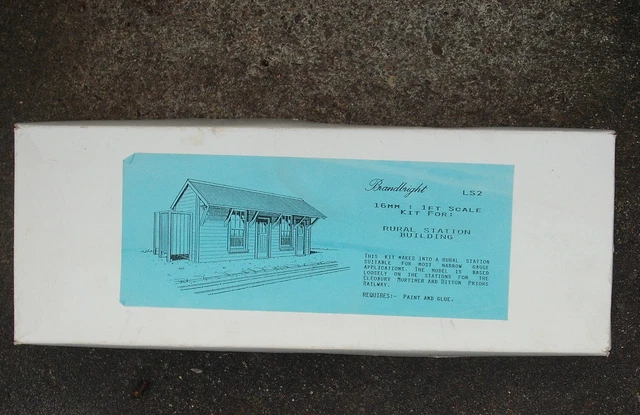 Brandbright LS2
16MM : 1FT SCALE
KIT FOR:
RURAL STATION
BUILDING
THIS KIT MAKES INTO A RURAL STATION
SUITABLE FOR MOST NARROW GAUGE
APPLICATIONS. THE MODEL IS BASED
LOOSELY ON THE STATIONS FOR THE
CLEOBURY MORTIMER AND DITTON PRIORS
RAILWAY.
REQUIRES:- PAINT AND GLUE.